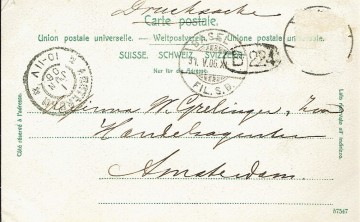 Drucksache
Carte postale.
Union postale universelle. — Weltpostverein. — Unione postale universale.
SUISSE. SCHWEIZ. SVIZZERA.
Nur für die Adresse.
BASEL
31.V.06.X
FIL. S.B.
224
AMSTERDAM
1 JUN 06
10-11V
Herren W.
Handelsagenten
Amsterdam.
Côté réservé à l'adresse.
Lato riservato all'indirizzo.
57347